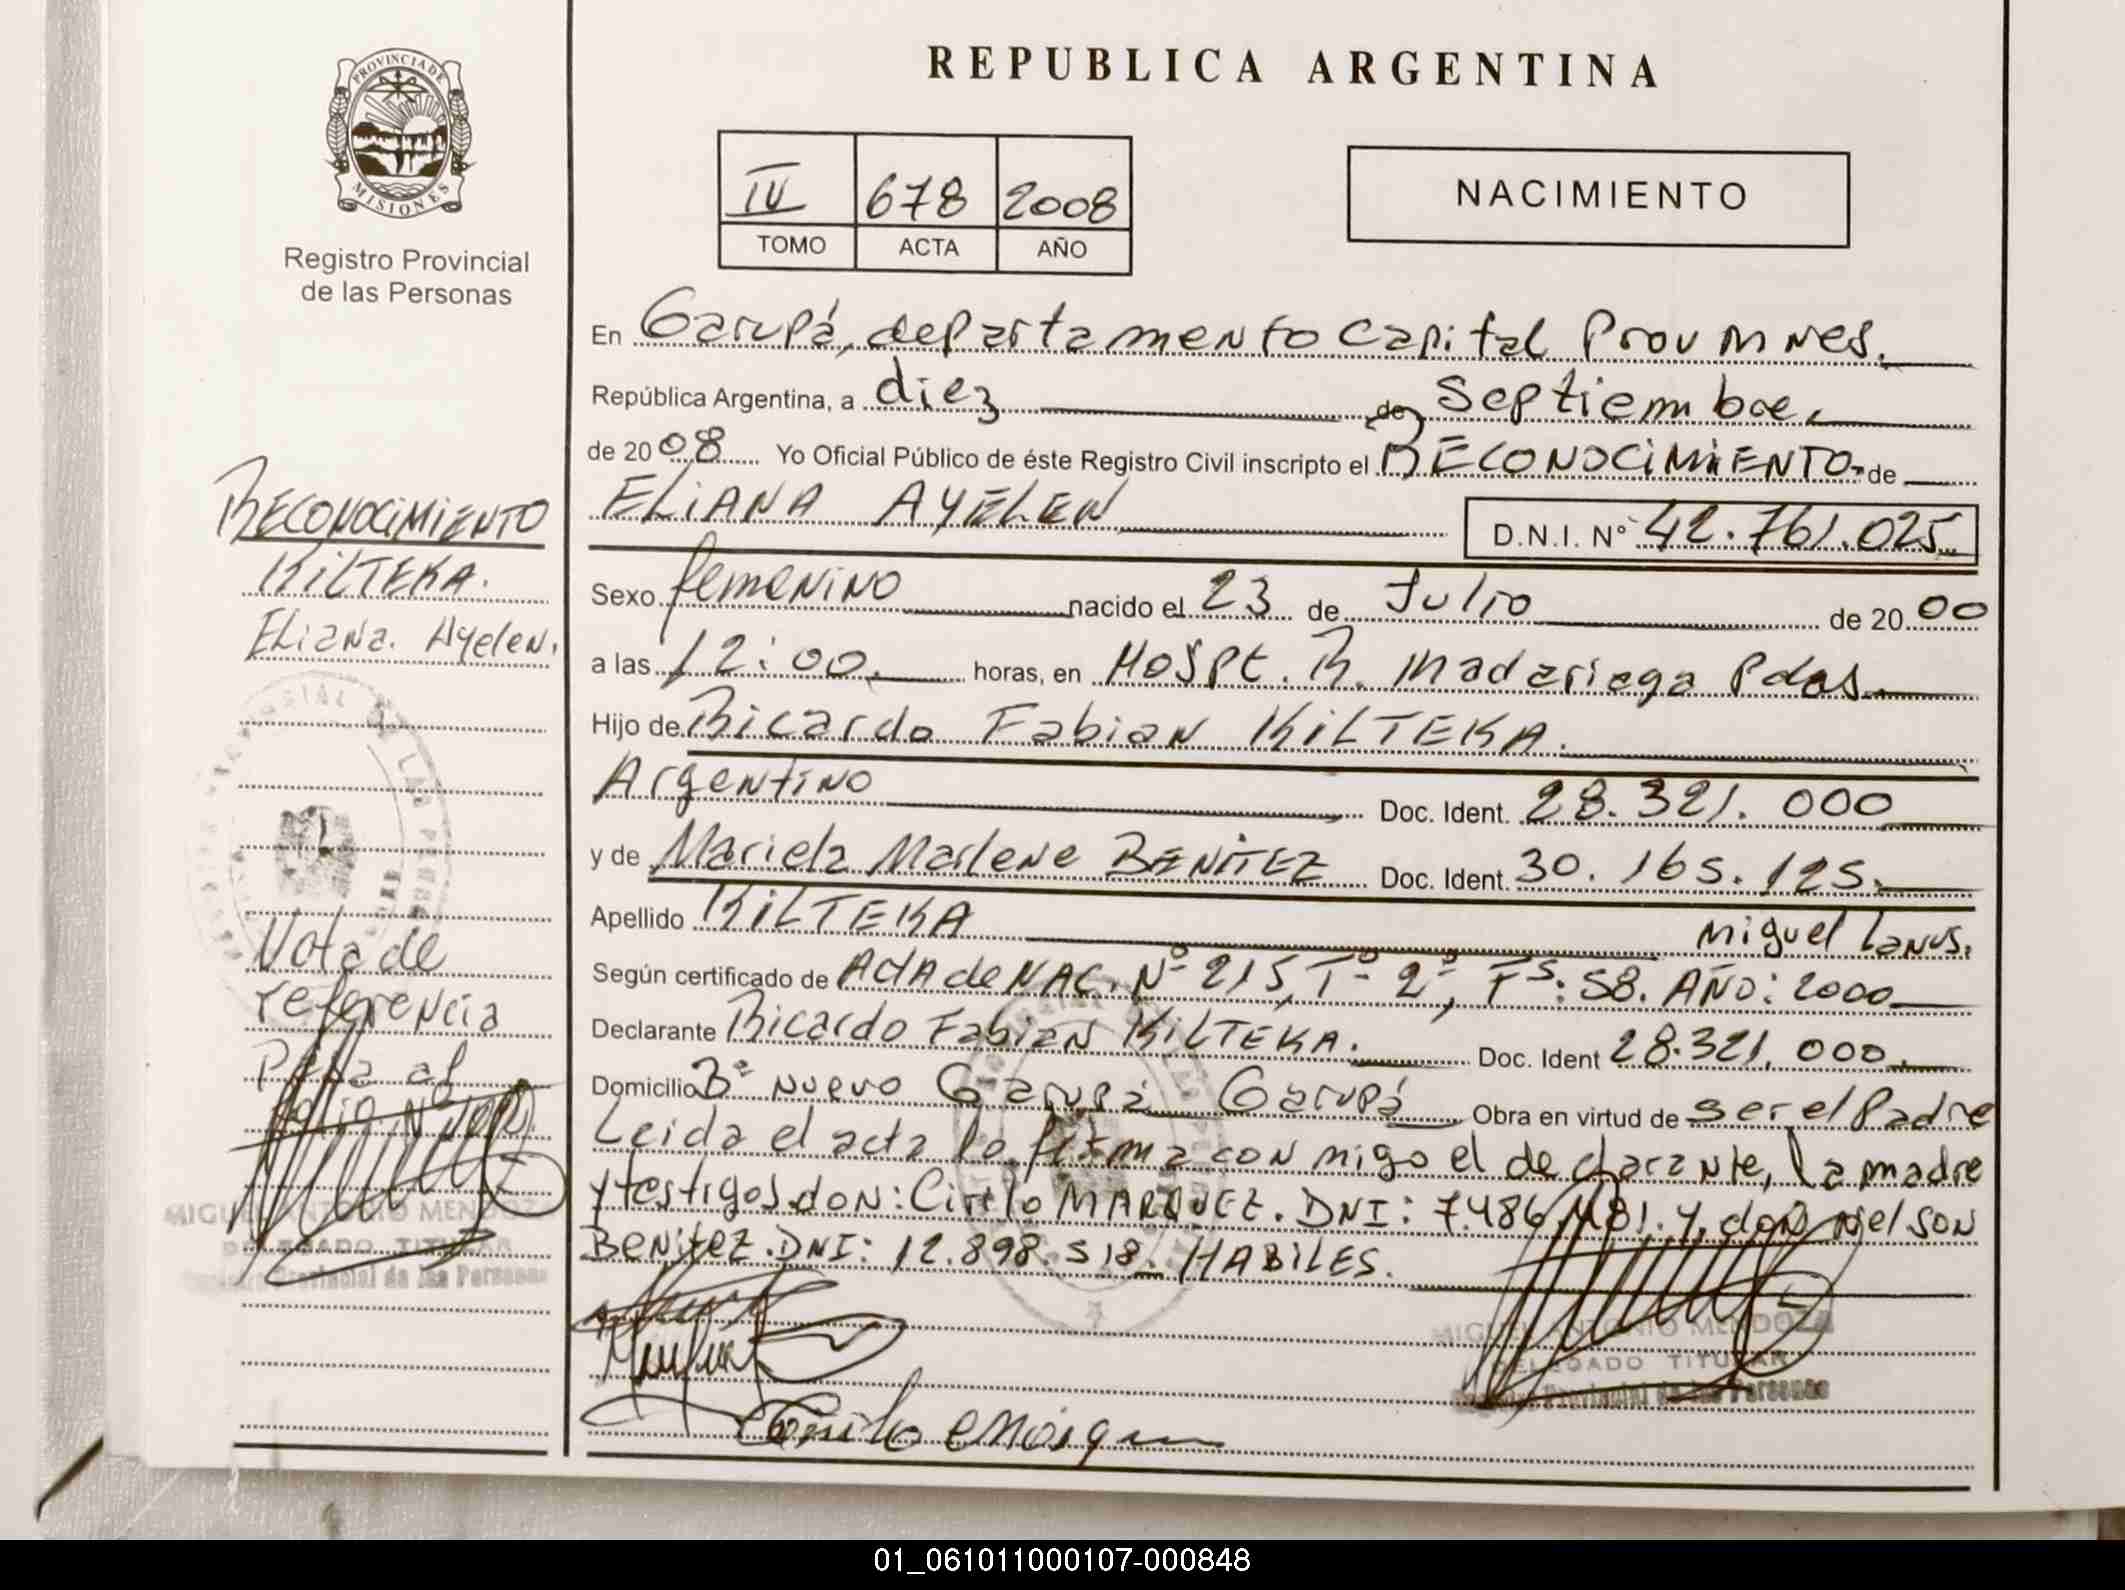 REPUBLICA ARGENTINA
PROVINCIA DE
MISIONES
Registro Provincial
de las Personas
IV 678 2008
TOMO ACTA AÑO
NACIMIENTO
En Garupá, departamento Capital Prov Mnes.
República Argentina, a diez de septiembre.
de 2008 Yo Oficial Público de éste Registro Civil inscripto el RECONOCIMIENTO de
ELIANA AYELEN
D.N.I. Nº 42.761.025
Sexo femenino nacido el 23 de Julio de 2000
a las 12:00 horas, en Hospt. R. Madariaga Pdas.
Hijo de Ricardo Fabian KILTEKA.
Argentino Doc. Ident. 28.321.000
y de Mariela Marlene BENITEZ Doc. Ident. 30.165.125.
Apellido KILTEKA Miguel Lanus.
Según certificado de Acta de NAC. Nº 215, Tº 2º, Fs: 58. AÑO: 2000
Declarante Ricardo Fabian KILTEKA. Doc. Ident 28.321.000.
Domicilio Bº Nuevo Garupá Garupá Obra en virtud de ser el Padre
Leida el acta la firma con migo el declarante, la madre
y testigos don: Cirilo MARQUEZ. DNI: 7.486. y, don Nelson
Benitez. DNI: 12.898.518. HABILES.
RECONOCIMIENTO
KILTEKA.
Eliana. Ayelen.
Nota de
referencia
Pasa al
folio Nº
MIGUEL ANTONIO MENDOZA
DELEGADO TITULAR
Registro Provincial de las Personas
MIGUEL ANTONIO MENDOZA
DELEGADO TITULAR
Registro Provincial de las Personas
01_061011000107-000848